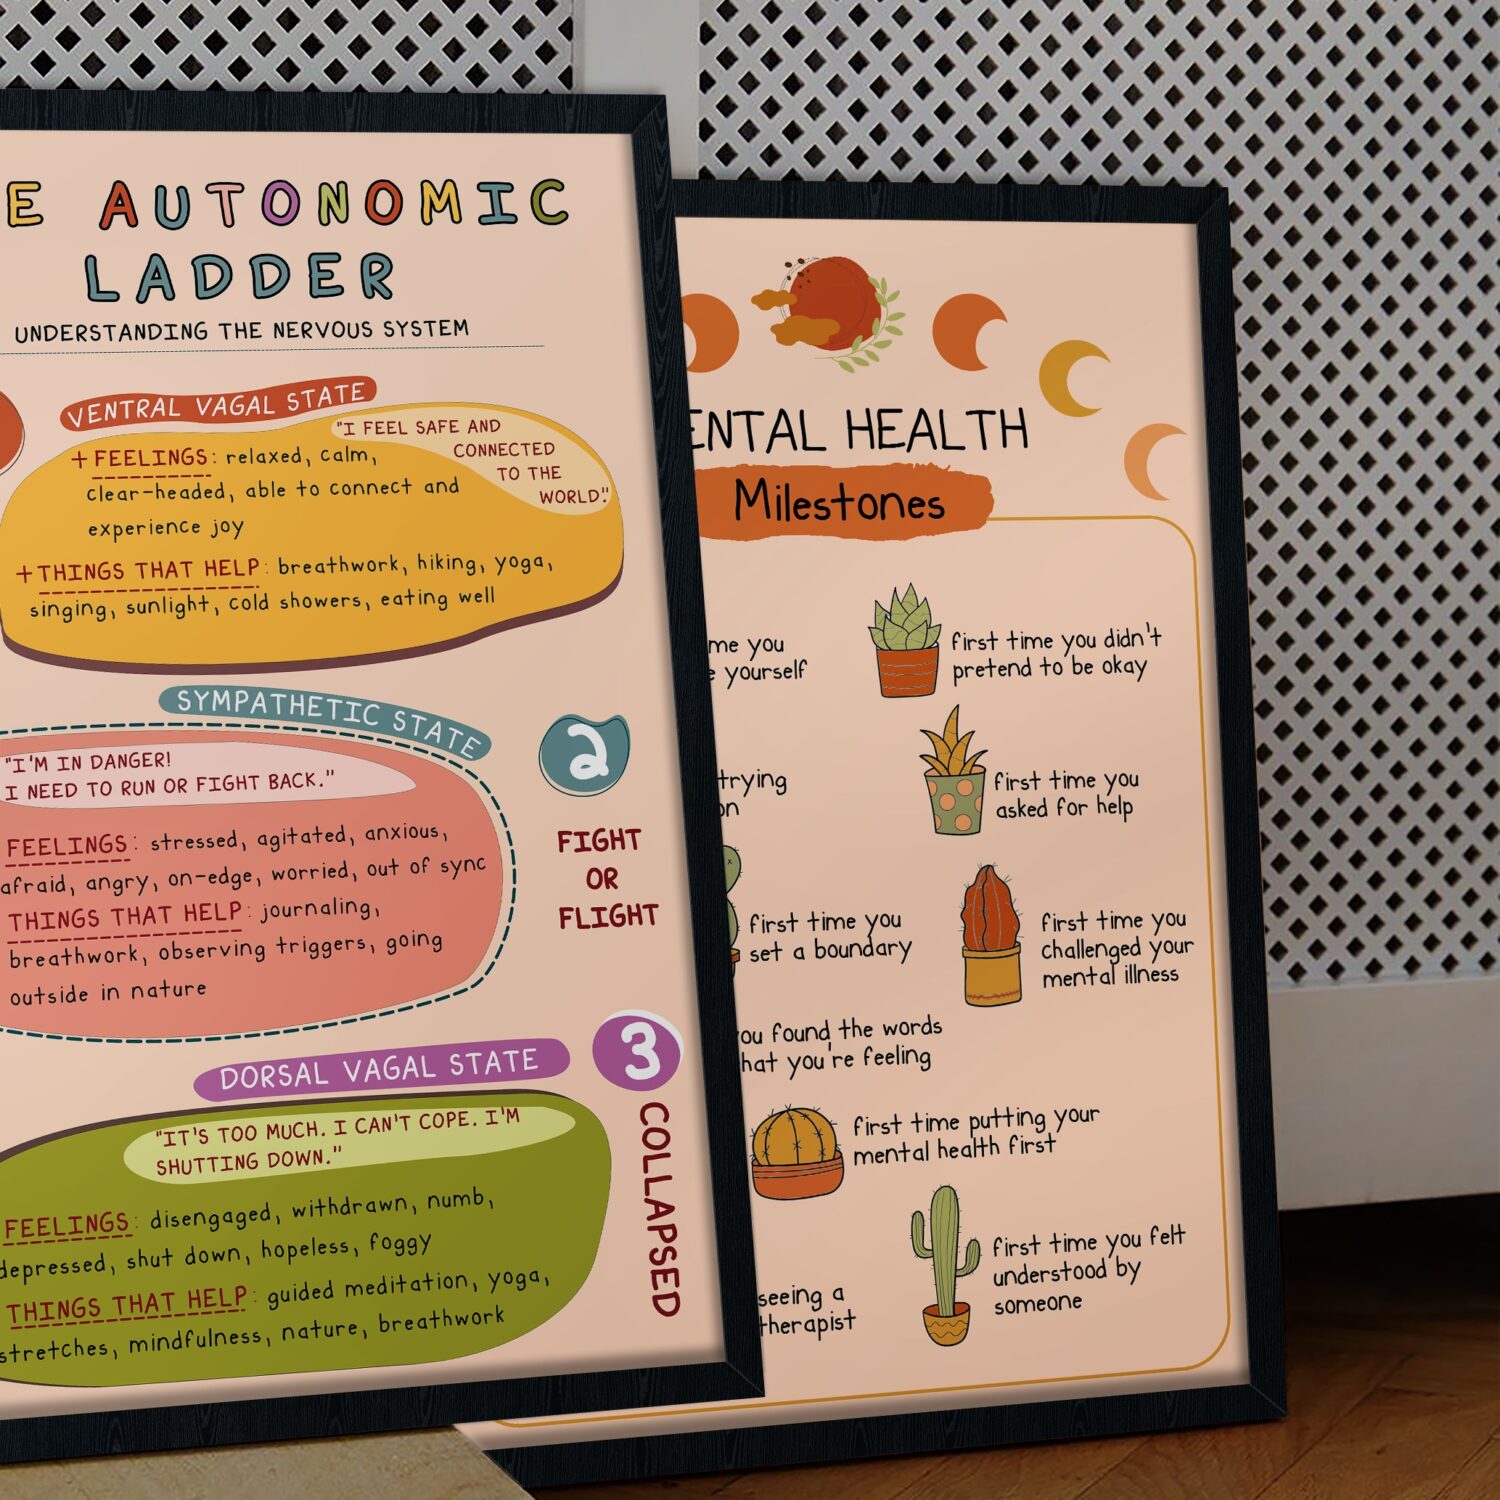 AUTONOMIC
LADDER
UNDERSTANDING THE NERVOUS SYSTEM
VENTRAL VAGAL STATE
"I FEEL SAFE AND
CONNECTED
TO THE
WORLD."
+ FEELINGS: relaxed, calm,
clear-headed, able to connect and
experience joy
+ THINGS THAT HELP: breathwork, hiking, yoga,
singing, sunlight, cold showers, eating well
SYMPATHETIC STATE
2
FIGHT
OR
FLIGHT
"I'M IN DANGER!
I NEED TO RUN OR FIGHT BACK."
FEELINGS: stressed, agitated, anxious,
afraid, angry, on-edge, worried, out of sync
THINGS THAT HELP: journaling,
breathwork, observing triggers, going
outside in nature
DORSAL VAGAL STATE
3
COLLAPSED
"IT'S TOO MUCH. I CAN'T COPE. I'M
SHUTTING DOWN."
FEELINGS: disengaged, withdrawn, numb,
depressed, shut down, hopeless, foggy
THINGS THAT HELP: guided meditation, yoga,
stretches, mindfulness, nature, breathwork
HEALTH
Milestones
you
yourself
first time you didn't
pretend to be okay
trying
first time you
asked for help
first time you
set a boundary
first time you
challenged your
mental illness
found the words
you're feeling
first time putting your
mental health first
seeing a
therapist
first time you felt
understood by
someone